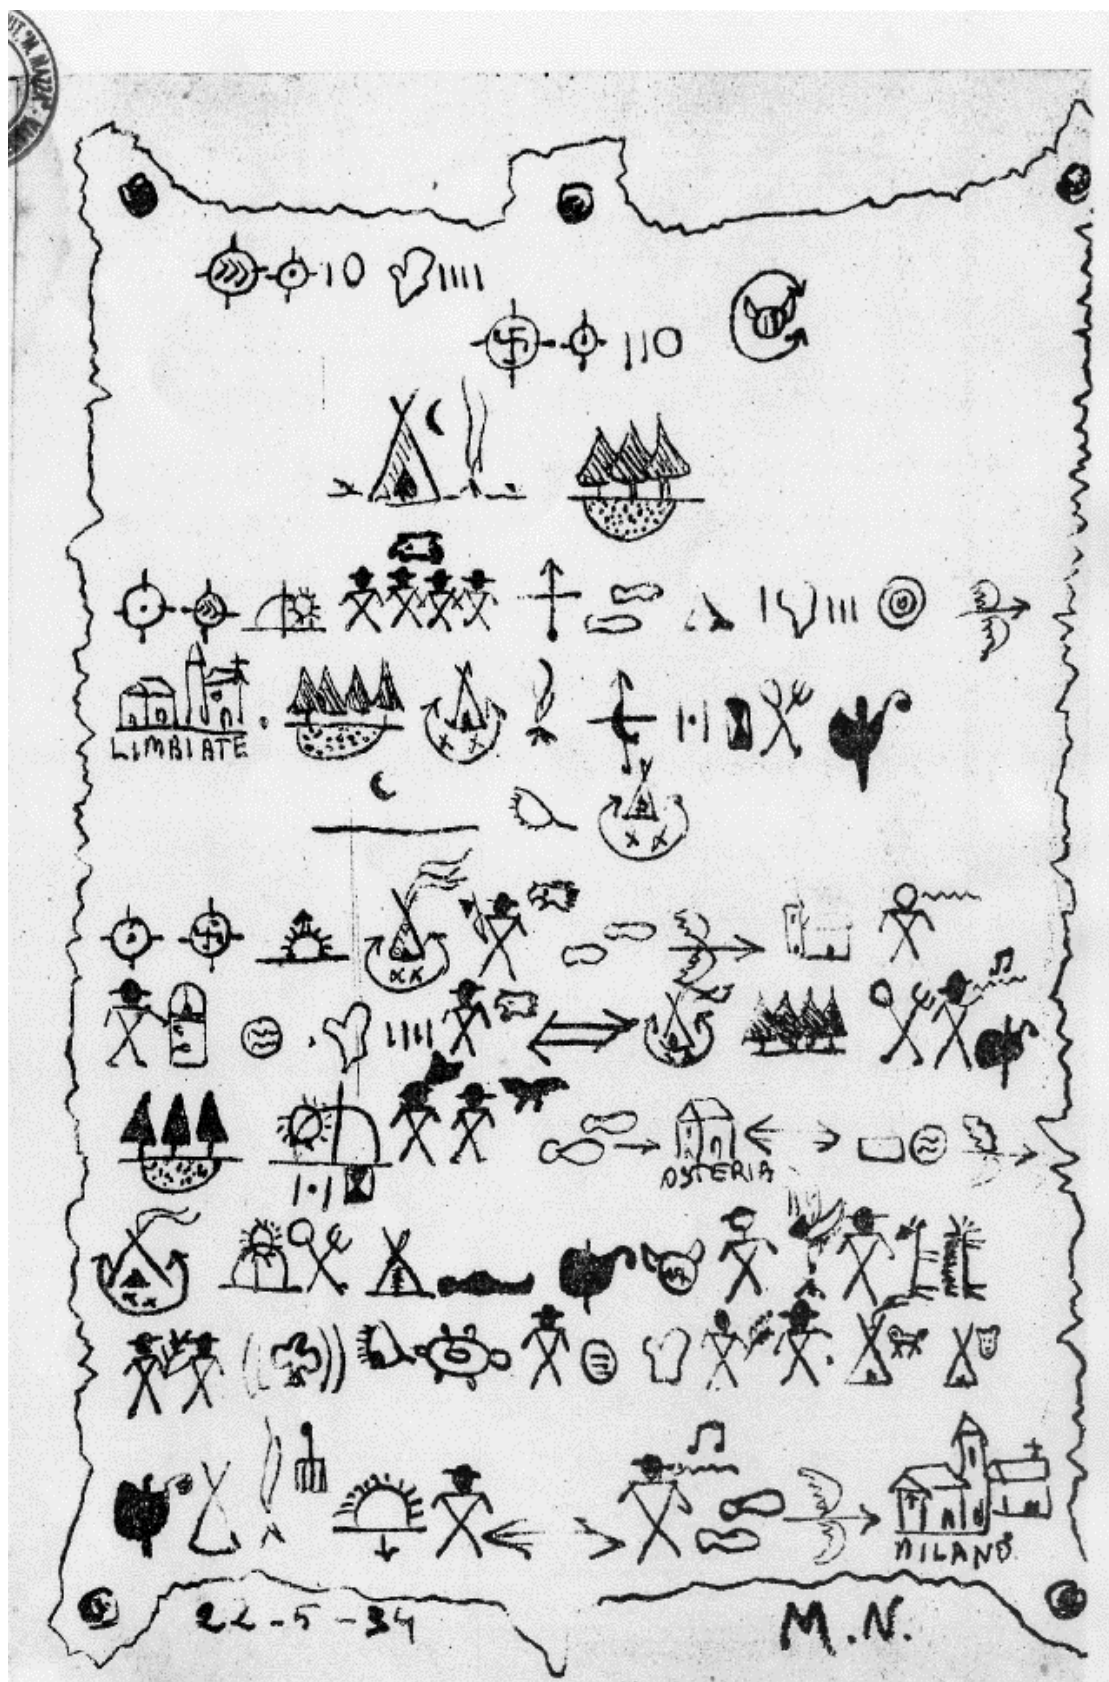 10
110
LIMBIATE
OSTERIA
MILANO
22-5-34
M.N.